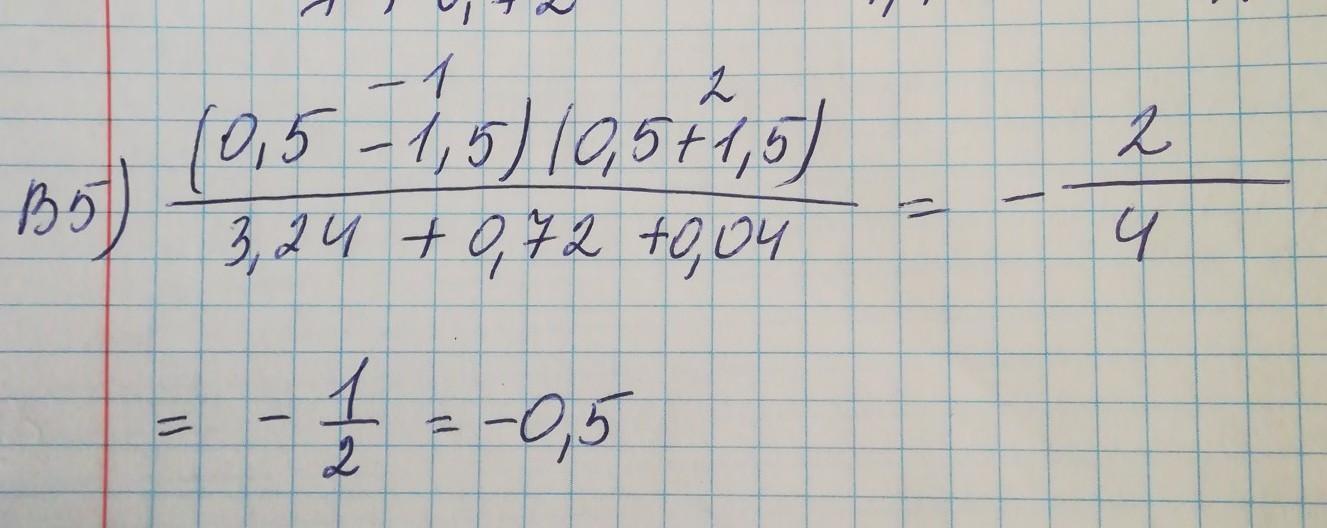 -1 2
В5) (0,5 - 1,5) (0,5 + 1,5) / 3,24 + 0,72 + 0,04 = - 2 / 4
= - 1 / 2 = -0,5